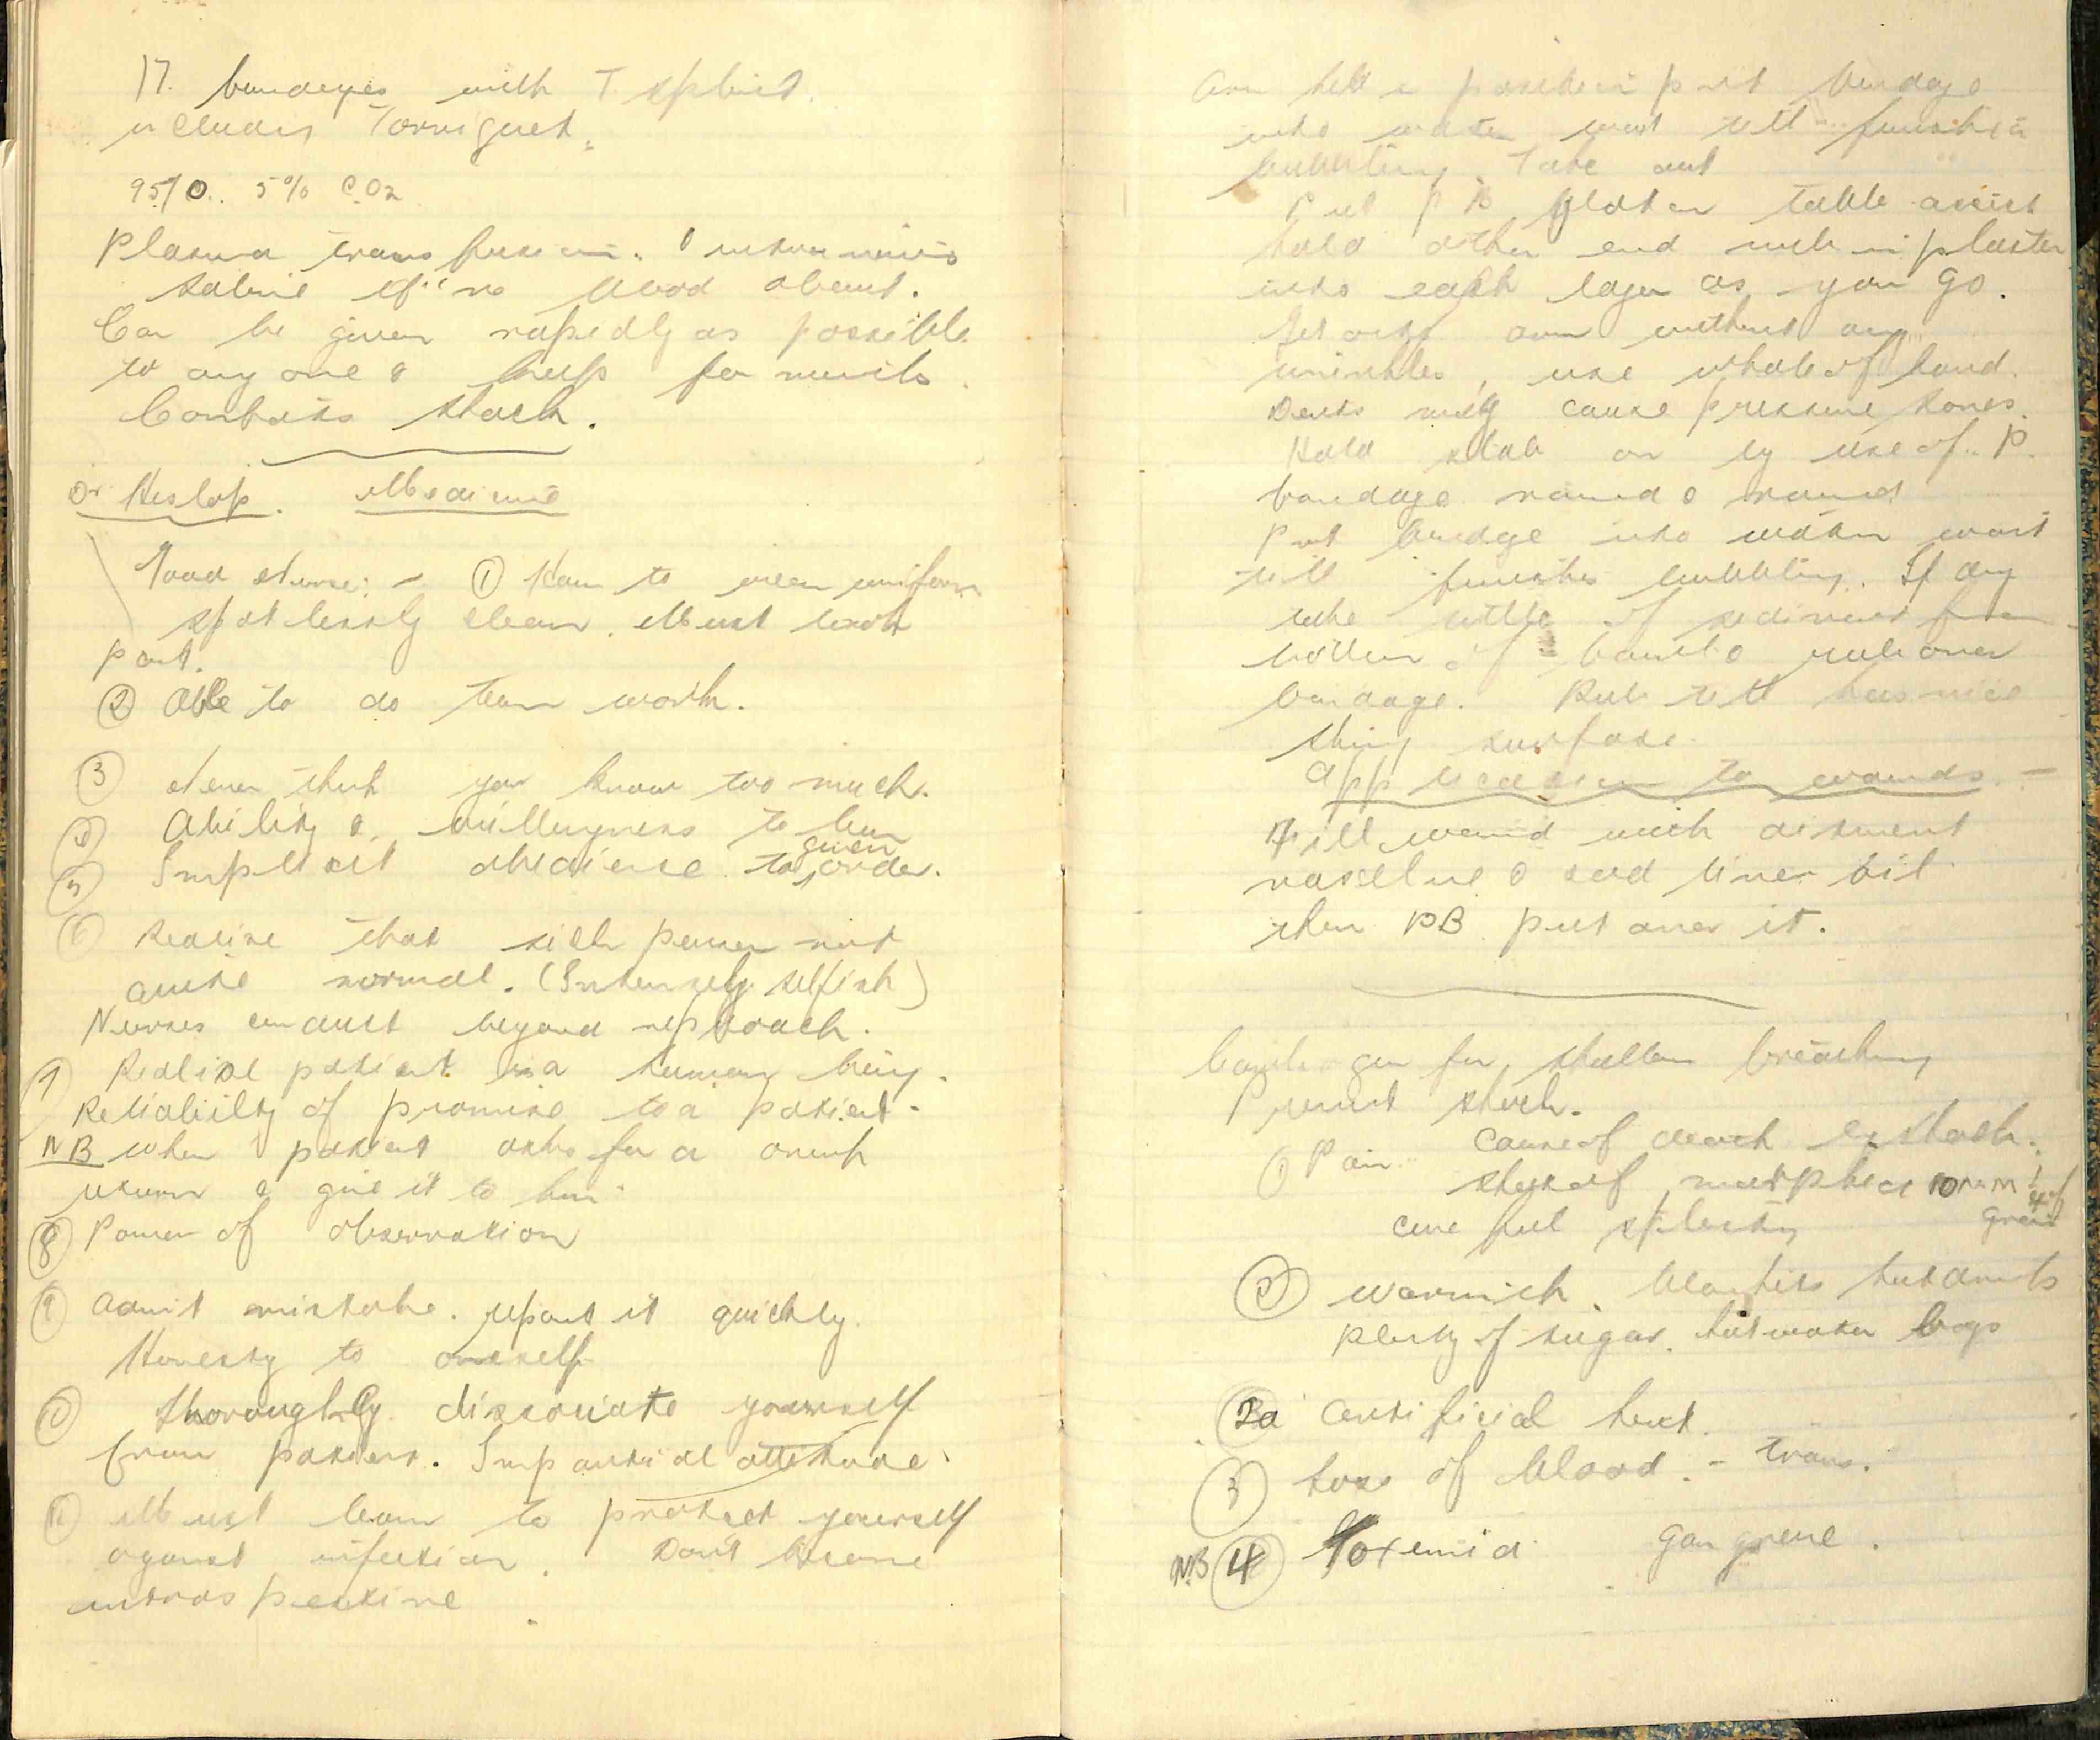 17. bandages with T splint.
includes Torniquet.
95% O.. 5% CO2
Plasma transfusion. Intravenous
saline if no blood about.
Can be given rapidly as possible
to any one & keeps for months.
Combats shock.
Dr. Heslop. Medicine
Good Nurse: - ① How to wear uniform
spotlessly clean. Must look
part.
② Able to do team work.
③ Never think you know too much.
④ Ability & willingness to learn
⑤ Implicit obedience to given order.
⑥ Realise that sick person not
quite normal. (Intensely selfish)
Nurses conduct beyond reproach.
⑦ Realise patient is a human being.
Reliability of promise to a patient.
NB when patient asks for a drink
return & give it to him.
⑧ Power of observation
⑨ Admit mistake. report it quickly.
Honesty to oneself
⑩ thoroughly dissociate yourself
from patient. Impartial attitude.
⑪ Must learn to protect yourself
against infection. Don't become
introspective
Arm held in position put bandage
into water wait till finished
bubbling. Take out
Put P B flat on table assist
hold other end rub in plaster
into each layer as you go.
Put onto arm without any
wrinkles, use whole of hand.
Dents may cause pressure sores.
Hold slab on by use of P.
bandage round & round
Put bandage into water wait
till finishes bubbling. If dry
take little of sediment from
bottom of bowl & rub over
bandage. Rub till has nice
shiny surface.
Application to wounds. -
Fill wound with
vaseline & cod liver oil
then PB put over it.
for shallow breathing
Prevent shock.
① Pain Cause of death in shock.
morphia
careful splinting grain
② warmth. blankets hot drinks
plenty of sugar. hot water bags
2a artificial heat.
③ loss of blood. - trans.
NB ④ Toxemia gangrene.